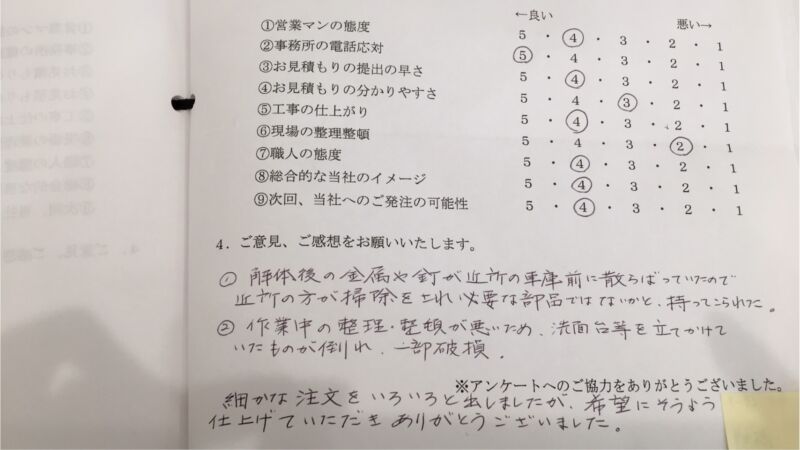 ←良い
悪い→
①営業マンの態度 5 ・ 4 ・ 3 ・ 2 ・ 1
②事務所の電話応対 5 ・ 4 ・ 3 ・ 2 ・ 1
③お見積もりの提出の早さ 5 ・ 4 ・ 3 ・ 2 ・ 1
④お見積もりの分かりやすさ 5 ・ 4 ・ 3 ・ 2 ・ 1
⑤工事の仕上がり 5 ・ 4 ・ 3 ・ 2 ・ 1
⑥現場の整理整頓 5 ・ 4 ・ 3 ・ 2 ・ 1
⑦職人の態度 5 ・ 4 ・ 3 ・ 2 ・ 1
⑧総合的な当社のイメージ 5 ・ 4 ・ 3 ・ 2 ・ 1
⑨次回、当社へのご発注の可能性 5 ・ 4 ・ 3 ・ 2 ・ 1
4．ご意見、ご感想をお願いいたします。
① 解体後の金属や釘が近所の車庫前に散らばっていたので
近所の方が掃除をされ必要な部品ではないかと、持ってこられた。
② 作業中の整理・整頓が悪いため、洗面台等を立てかけて
いたものが倒れ、一部破損．
※アンケートへのご協力をありがとうございました。
細かな注文をいろいろと出しましたが、希望にそうよう
仕上げていただき ありがとうございました。